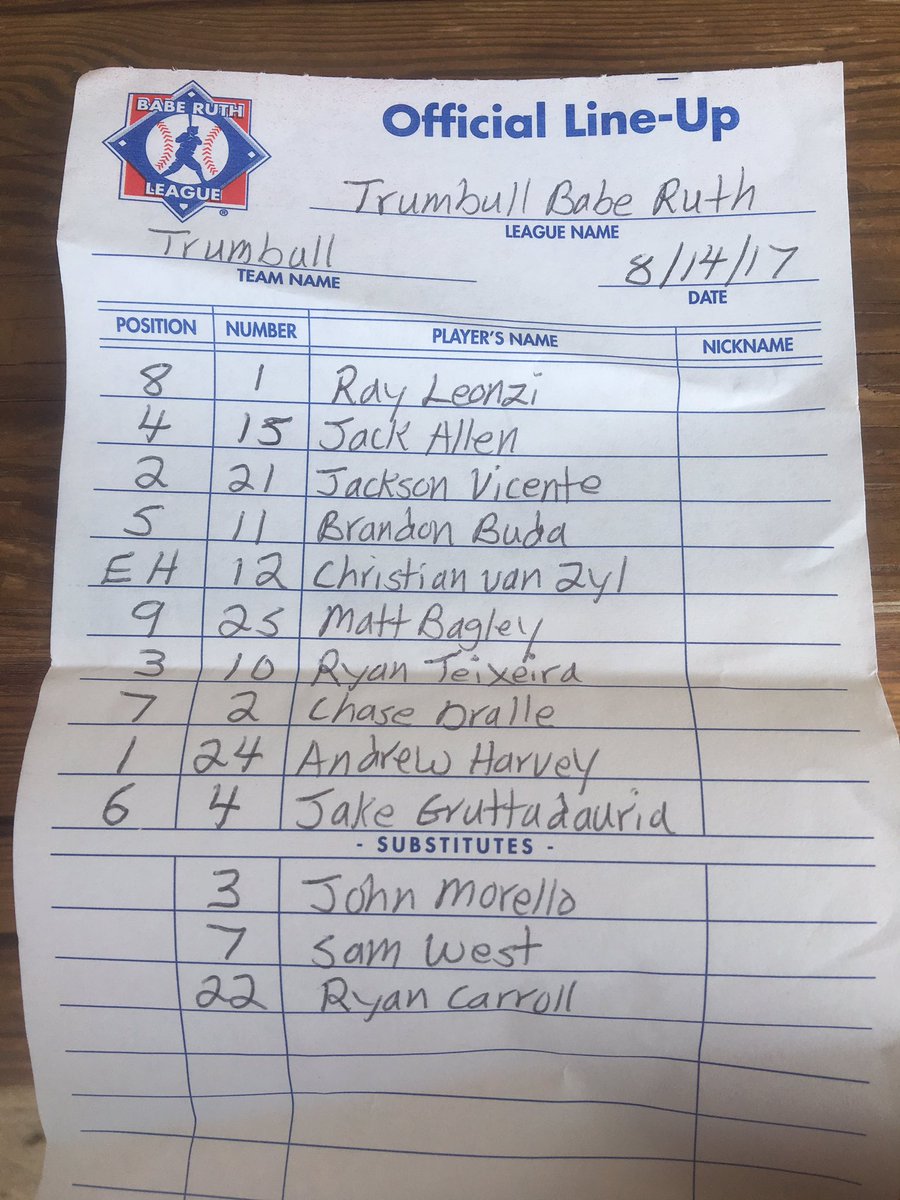 BABE RUTH
LEAGUE
®
Official Line-Up
Trumbull Babe Ruth
LEAGUE NAME
Trumball
TEAM NAME
8/14/17
DATE
POSITION NUMBER PLAYER'S NAME NICKNAME
8 1 Ray Leonzi
4 15 Jack Allen
2 21 Jackson Vicente
5 11 Brandon Buda
EH 12 Christian van Zyl
9 25 Matt Bagley
3 10 Ryan Teixeira
7 2 Chase Dralle
1 24 Andrew Harvey
6 4 Jake Gruttadauria
- SUBSTITUTES -
3 John Morello
7 Sam West
22 Ryan Carroll